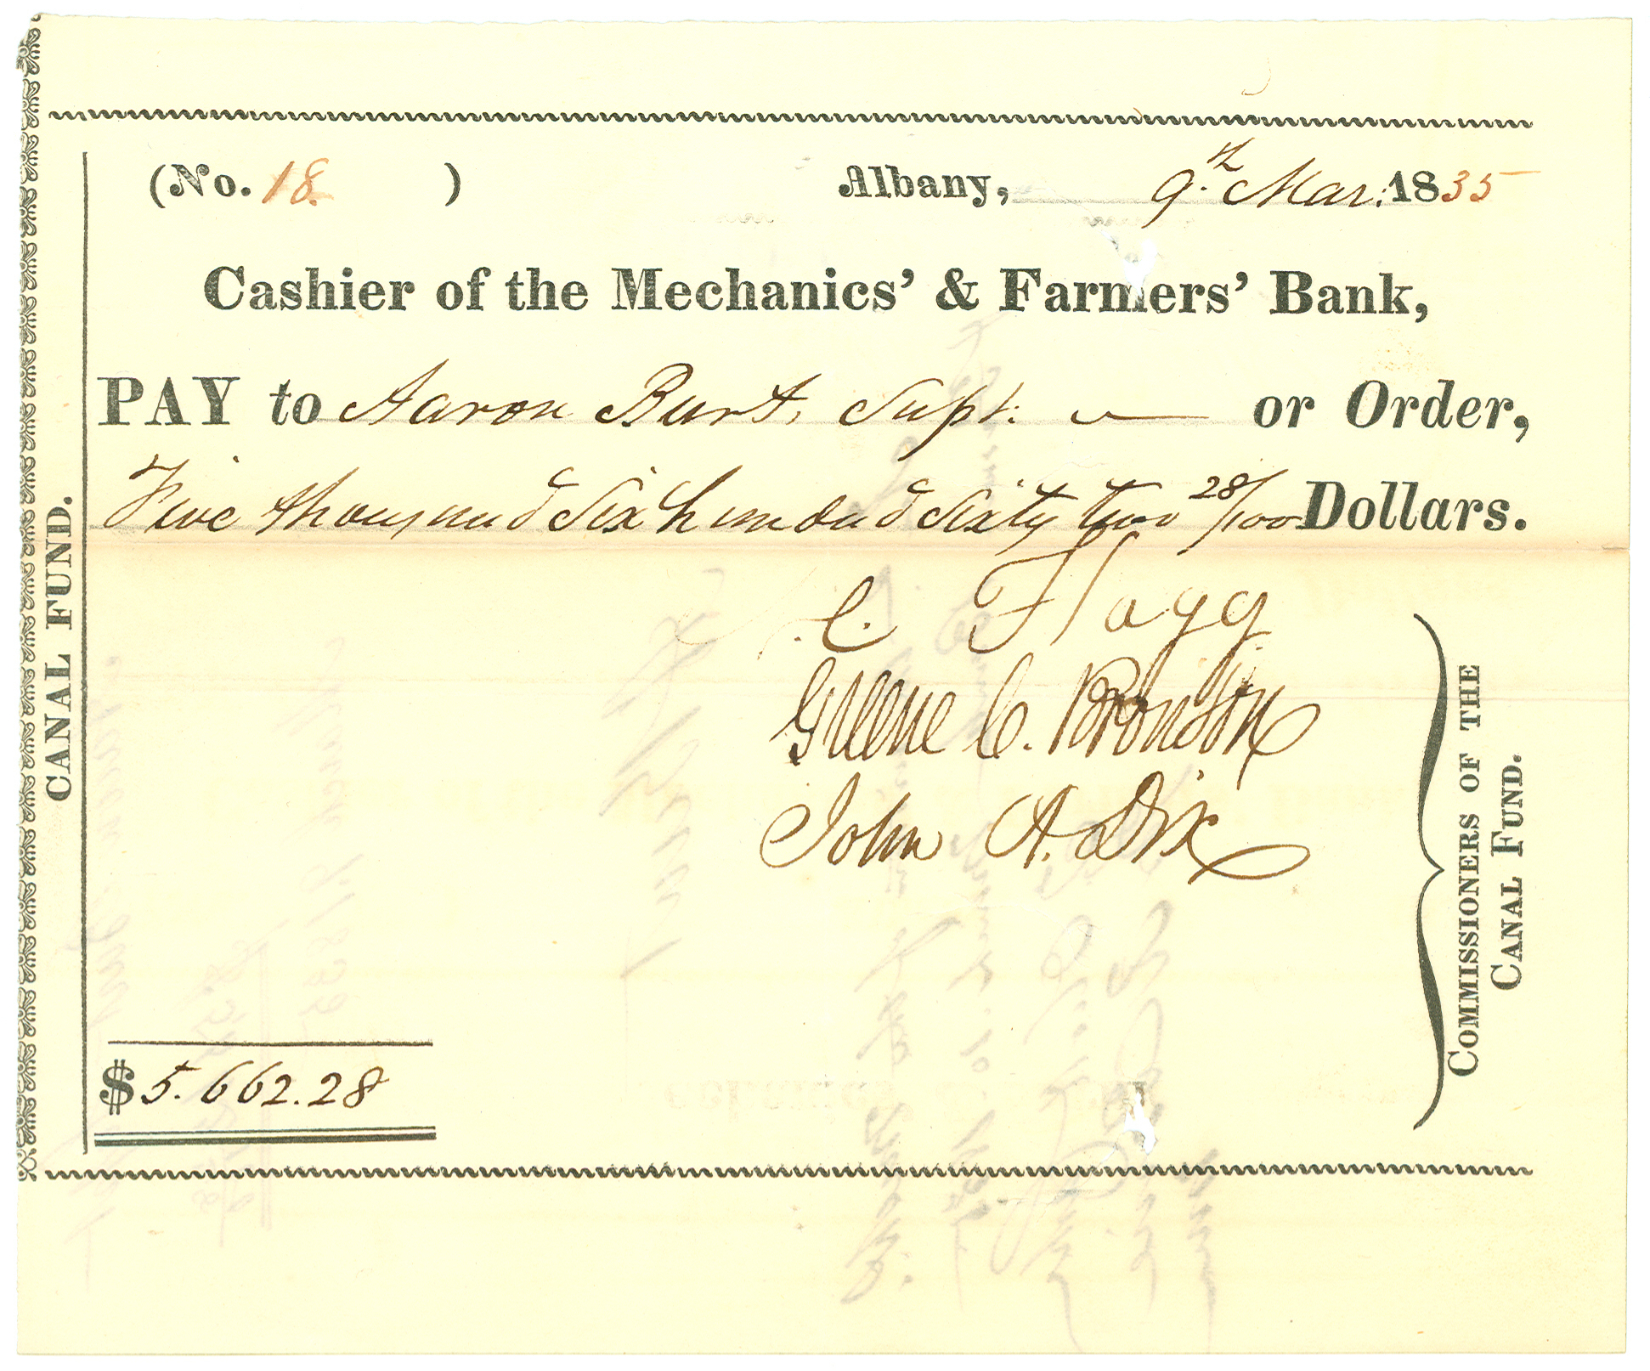 (No. 18. ) Albany, 9.th Mar: 1835
Cashier of the Mechanics' & Farmers' Bank,
PAY to Aaron Burt, Supt. or Order,
Five thousand Six hundred Sixty two 28/100 Dollars.
CANAL FUND.
.C. Flagg
Greene C. Bronson
John A. Dix
COMMISSIONERS OF THE
CANAL FUND.
$ 5.662.28